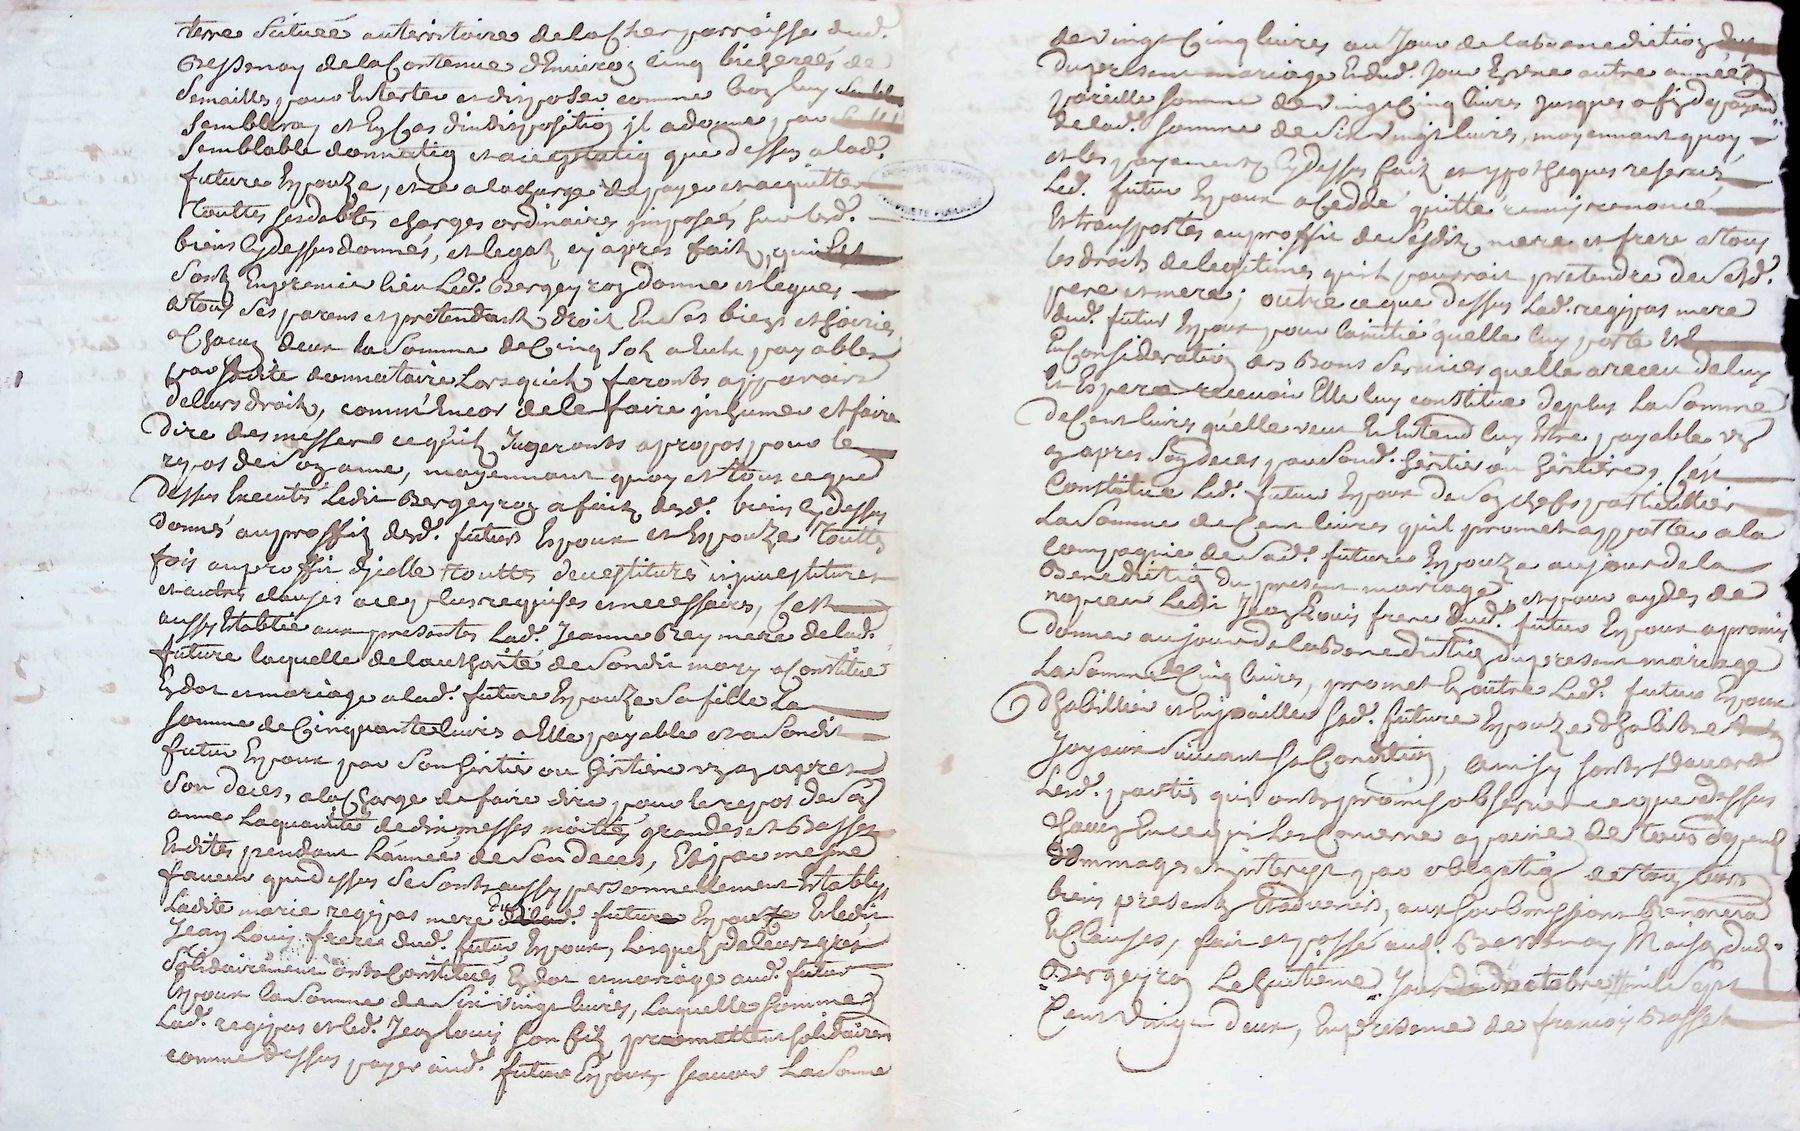 terre scituée au territoire de la Cher parroisse dud.
Bessenay de la Contenue d'Environ cinq bicherées de
semailles pour En tester et disposer comme bon luy
semblera, et En Cas d'indisposition il a donné par
semblable donnation et acceptation que dessus a lad.
future Espouze, et ce a la charge de payer et acquitter
touttes ses debtes charges ordinaires imposées sur lesd.
biens Cy dessus donnés, et legatz cy apres faitz, qui
sont En premier lieu Led. Bergeyron donne et legue
a tous ses parens et pretendantz droit En ses biens et hoiries
a Chacun deux la somme de Cinq solz a Eux payables
par sadite donnataire Lors qu'ilz feronts apparoir
de leurs droitz, comm'Encor de le faire inhumer et faire
dire des messes ce qu'ilz Jugeronts a propos pour le
repos de son ame, moyennant quoy et tous ce que
dessus Executé Ledit Bergeyron a faitz desd. biens Cy dessus
donnés au proffit desd. futurs Espoux et Espouze touttes
fois au proffit d'jcelle touttes devestitures investitures
et autres clauses a ce plus requises et necessaires, s'est
aussy Establie aux presantes Lad. Jeanne Rey mere de lad.
future laquelle de l'authorité de Sondit mary a Constitué
En dot et mariage a lad. future Espouze sa fille La
somme de Cinquante livres a Elle payable et a Sondit
futur Espoux par son hertier ou hertiere un an apres
son deces, a la Charge de faire dire pour le repos de son
ame La quantité de dix messes moitié grandes et Basses
Et dites pendant L'année de Son deces, Et par mesme
faveur que dessus se sonts aussy personnellement Establys
Ladite marie regipas mere dud. futur Espoux Et ledit
Jean Louis frere dud. futur Espoux, Lesquelz de leurs grés
solidairement onts Constitués En dot et mariage aud. futur
Espoux la somme de Six vingt livres, Laquelle somme
Lad. regipas et led. Jean louis son filz promettent solidairem
comme dessus payer aud. futur Espoux, scavoir La Somme
de vingt Cinq livres au Jour de la benediction
du present mariage Et dud. Jour En une autre année
pareille somme de vingt Cinq livres jusques a fin de payem
de lad. somme de six vingt livres, moyennant quoy
et les payements Cy dessus faitz et ypotheques reservés
Led. futur Espoux a Ceddé quitté remis renoncé
Et transportés au proffit de Sesdits mere et frere a tous
les droitz de legitimes qu'il pourroit pretendre de Sesd.
pere et mere; outre ce que dessus Lad. regipas mere
dud. futur Espoux pour l'amitié qu'elle luy porte Et
En Consideration des Bons Services qu'elle a receu de luy
Et Espere recevoir Elle luy constitue de plus La Somme
de Cent livres qu'elle veut Et Entend luy Estre payable un
an apres Son deces par Sond. hertier ou hertiere, s'est
Constitué Led. futur Espoux de Son chefs particullier
La Somme de Cent livres qu'il promet apporter a la
Compagnie de Sad. future Espouze au jour de la
Benediction du present mariage, et pour aydes de
nopces Ledit Jean Louis frere dud. futur Espoux a promis
donner au jour de la Benediction du present mariage
La Somme de Cinq livres, promet En outre Led. futur Espoux
d'habillier et Enjoailler sad. future Espouze d'habits et
Joyaux Suivant sa Condition, Ainsy sonts d'accord
Lesd. parties qui onts promis observer ce que dessus
chacun En ce qui Les Concerne a paine de tous despens
dommages et interest par obligation de tous leurs
biens presentz Et advenirs, aux soubmissions Renonciaõns
Et Clauses, fait et passé aud. Bessenay Maison dud.
Bergeyron Le huitieme Jour d'octobre mil Sept
Cent Vingt deux, En presence de francois Basset